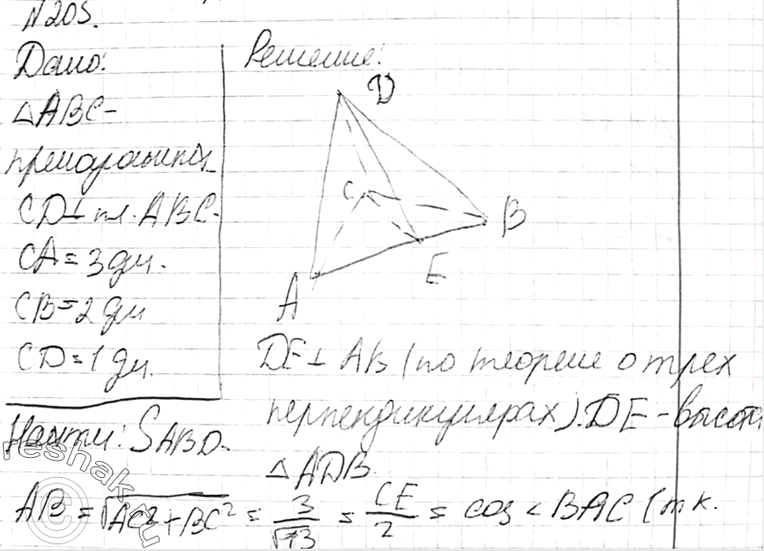 N205.
Дано:
△ABC-
прямоугольный
CD⊥пл. ABC.
CA=3дм.
CB=2дм
CD=1дм.
Найти: SABD.
Решение:
D
C
B
A
E
DE⊥AB (по теореме о трех
перпендикулярах). DE-высота
△ADB.
AB=√AC²+BC² = 3/√13 = CE/2 = cos<BAC (т.к.
reshak